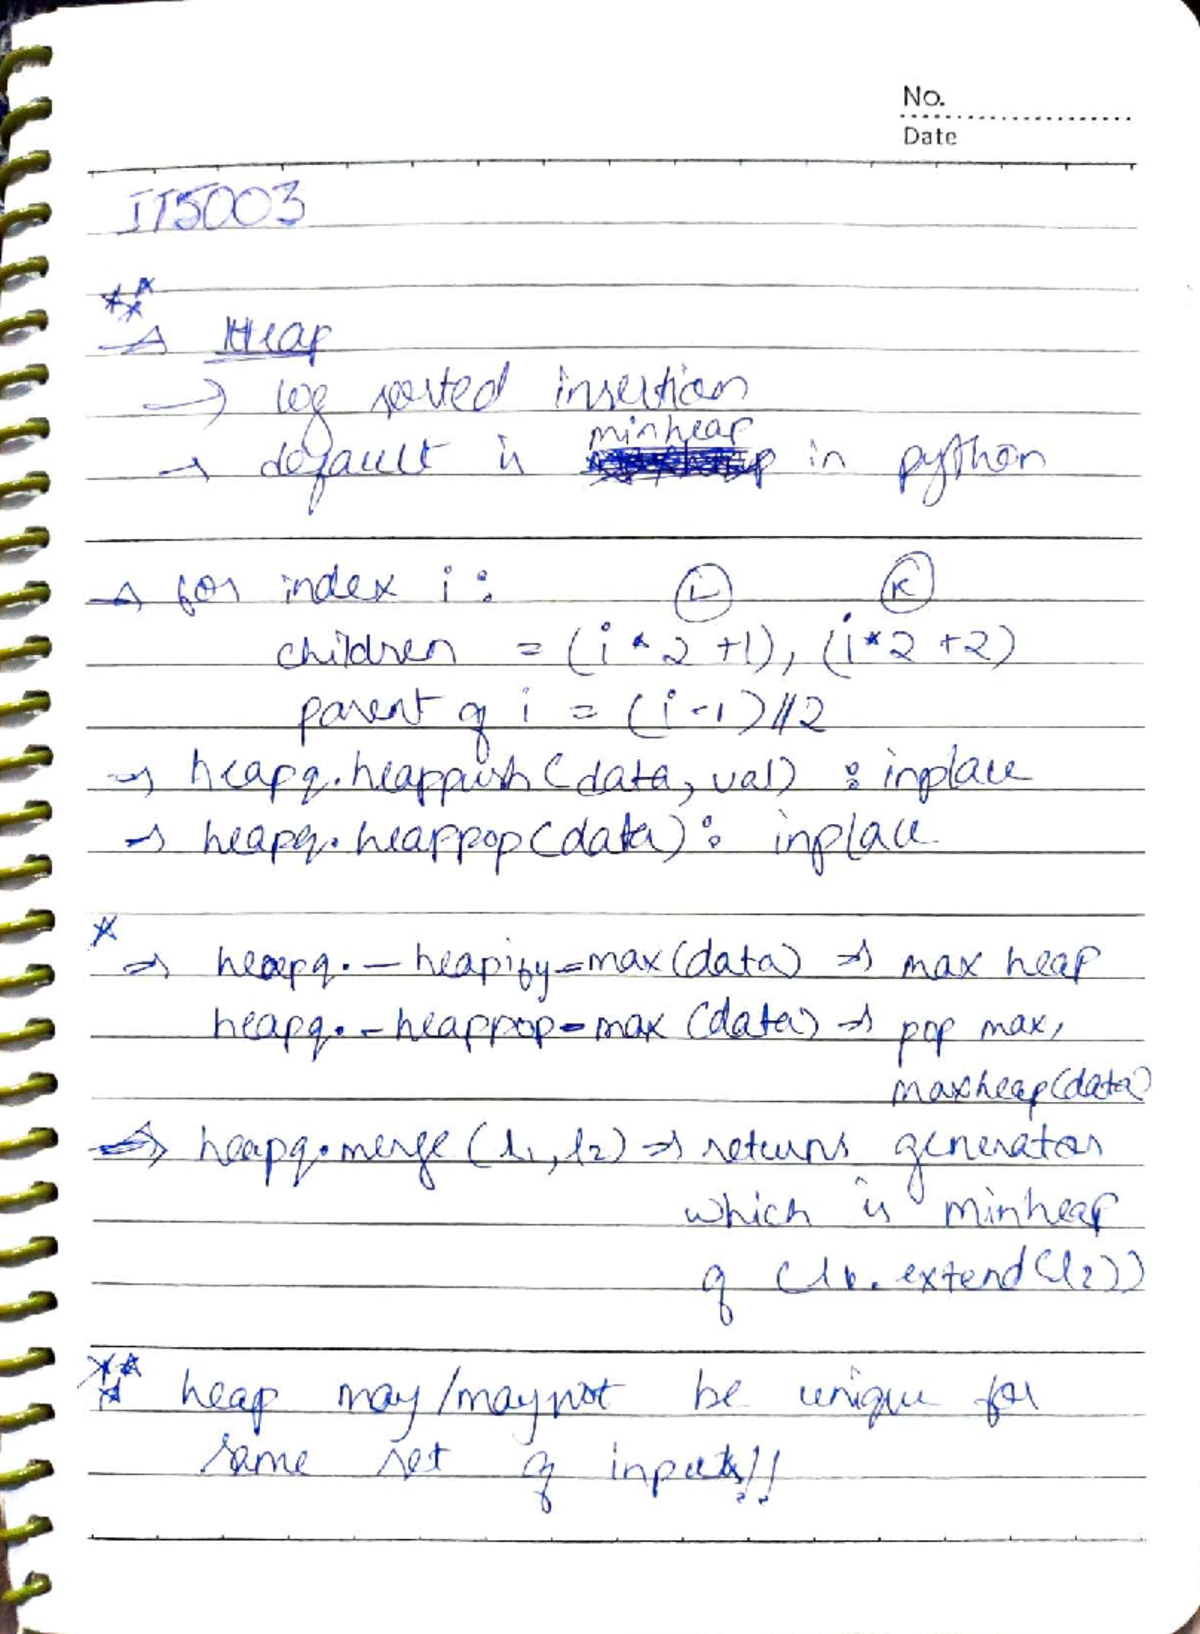 No.
Date
IT5003
*** → Heap
→ log sorted insertion
→ default is minheap in python
→ for index i :
L R
children = (i*2+1), (i*2+2)
parent of i = (i-1)//2
→ heapq.heappush(data, val) : inplace
→ heapq.heappop(data) : inplace
*
⇒ heapq._heapify_max(data) ⇒ max heap
heapq._heappop_max(data) ⇒ pop max,
maxheap(data)
⇒ heapq.merge(l1, l2) ⇒ returns generator
which is minheap
of (l1.extend(l2))
*** heap may/maynot be unique for
same set of inputs!!